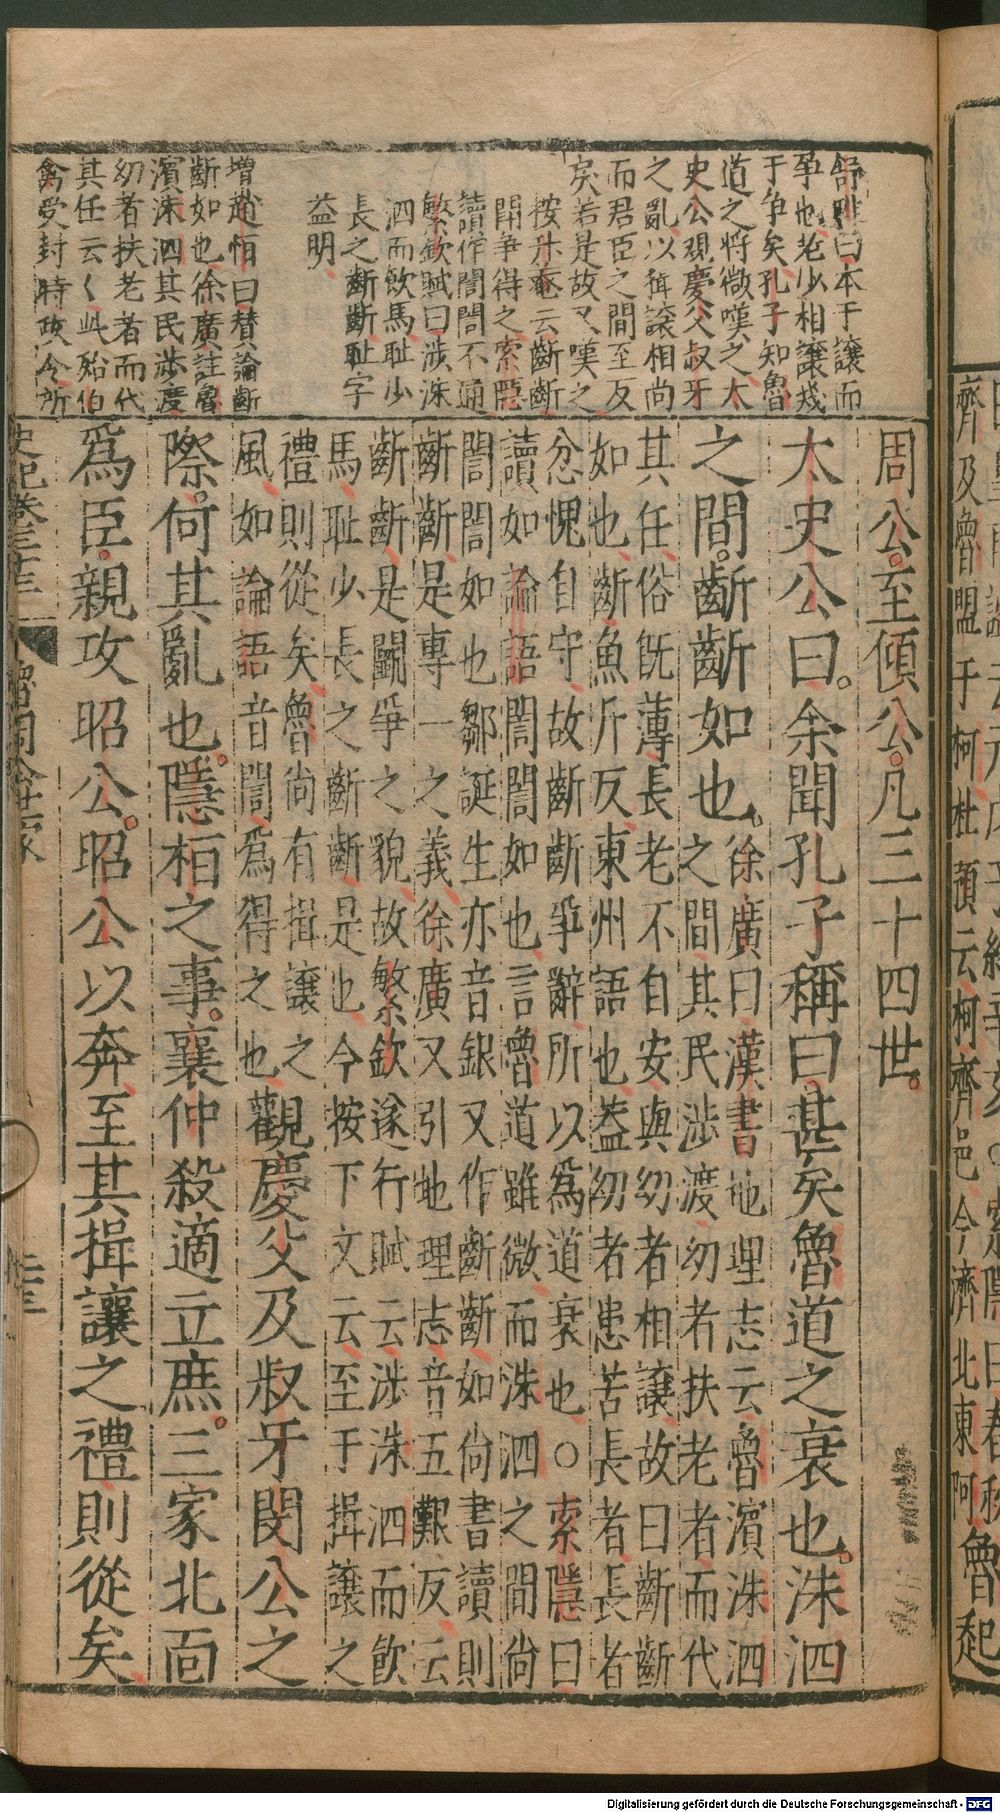 舒雅曰本于讓而
爭也老少相讓幾
于争矣孔子知魯
道之將微嘆之太
史公觀慶父叔牙
之亂以揖讓相尚
而君臣之間至反
戾若是故又嘆之
按升菴云斷斷
鬥争得之索隱
讀作誾誾不通
繁欽賦曰涉洙
泗而飲馬耻少
長之斷斷耻字
益明
増趙恒曰賛論斷
斷如也徐廣註魯
濱洙泗其民涉度
幼者扶老者而代
其任云〱此殆伯
禽受封時政令所
周公至傾公凡三十四世
太史公曰余聞孔子稱曰甚矣魯道之衰也洙泗
之間斷斷如也
徐廣曰漢書地理志云魯濱洙泗
之間其民涉渡幼者扶老者而代
其任俗既薄長老不自安與幼者相讓故曰斷斷
如也斷魚斤反東州語也葢幼者患苦長者長者
忿愧自守故斷斷爭辭所以爲道衰也○索隱曰
讀如論語誾誾如也言魯道雖微而洙泗之間尙
誾誾如也鄒誕生亦音銀又作斷斷如尙書讀則
斷斷是專一之義徐廣又引地理志音五艱反云
斷斷是鬬爭之貌故繁欽遂行賦云涉洙泗而飮
馬耻少長之斷斷是也今按下文云至于揖讓之
禮則從矣魯尙有揖讓之
風如論語音誾爲得之也
觀慶父及叔牙閔公之
際何其亂也隱桓之事襄仲殺適立庶三家北面
爲臣親攻昭公昭公以奔至其揖讓之禮則從矣
史記卷三十三
魯周公世家
Digitalisierung gefördert durch die Deutsche Forschungsgemeinschaft - DFG